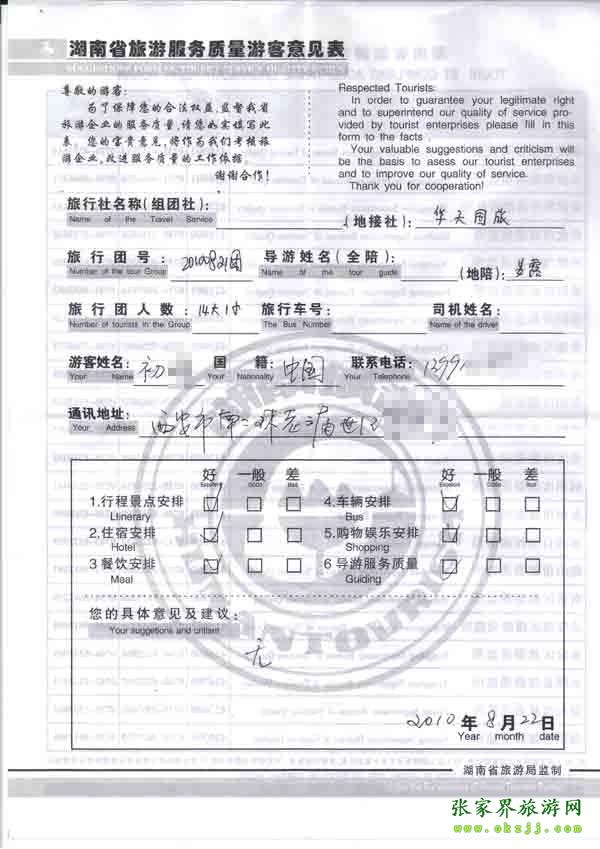 湖南省旅游服务质量游客意见表
尊敬的游客:
为了保障您的合法权益,监督我省
旅游企业的服务质量,请您如实填写此
表。您的宝贵意见,将作为我们考核旅
游企业,改进服务质量的工作依据。
谢谢合作!
Respected Tourists:
In order to guarantee your legitimate right
and to superintend our quality of service pro-
vided by tourist enterprises please fill in this
form to the facts .
Your valuable suggestions and criticism will
be the basis to asess our tourist enterprises
and to improve our quality of service.
Thank you for cooperation!
旅行社名称(组团社): (地接社): 华天国旅
Name of the Travel Service
旅行团号: 20100821团 导游姓名(全陪): (地陪):
Number of the tour Group Name of the tour guide
旅行团人数: 14大1小 旅行车号: 司机姓名:
Number of tourists in the Group The Bus Number Name of the driver
游客姓名: 初 国籍: 中国 联系电话: 1399
Your Name Your Nationality Your Telephone
通讯地址: 西安市南二环
Your Address
好 一般 差 好 一般 差
Excellent Good Bad Excellent Good Bad
1.行程景点安排 4.车辆安排
Ltinerary Bus
2.住宿安排 5.购物娱乐安排
Hotel Shopping
3 餐饮安排 6 导游服务质量
Meal Guiding
您的具体意见及建议:
Your suggetions and critism
无
2010 年 8 月 22 日
Year month date
湖南省旅游局监制
张家界旅游网
www.okzjj.com